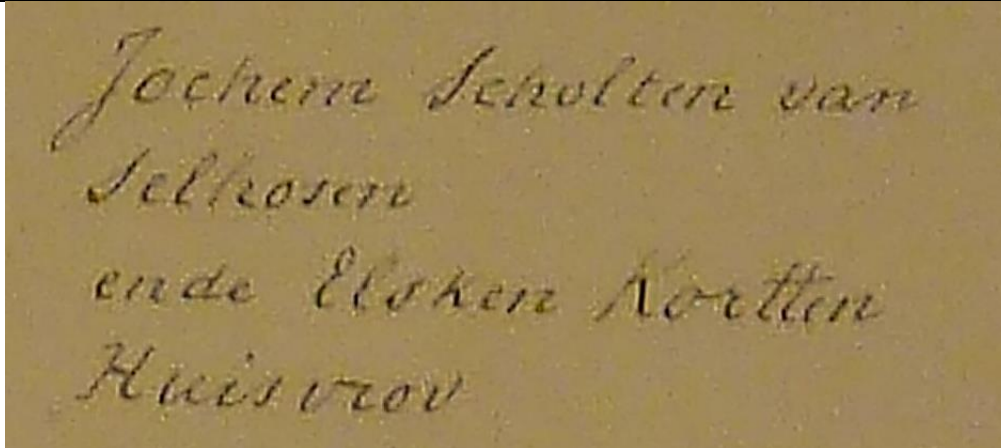 Jochem Scholten van
Selhosen
ende Elsken Kortten
Huisvrov